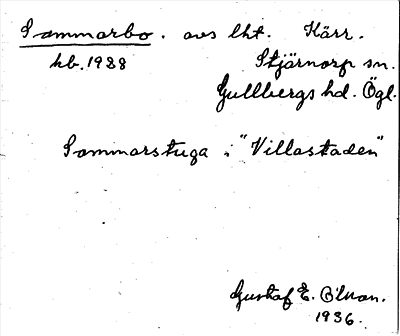 Sommarbo. avs lht. Kärr.
kb. 1928 Stjärnorp sn.
Gullbergs hd. Ögl.
Sommarstuga i "Villastaden"
Gustaf E.
1936.